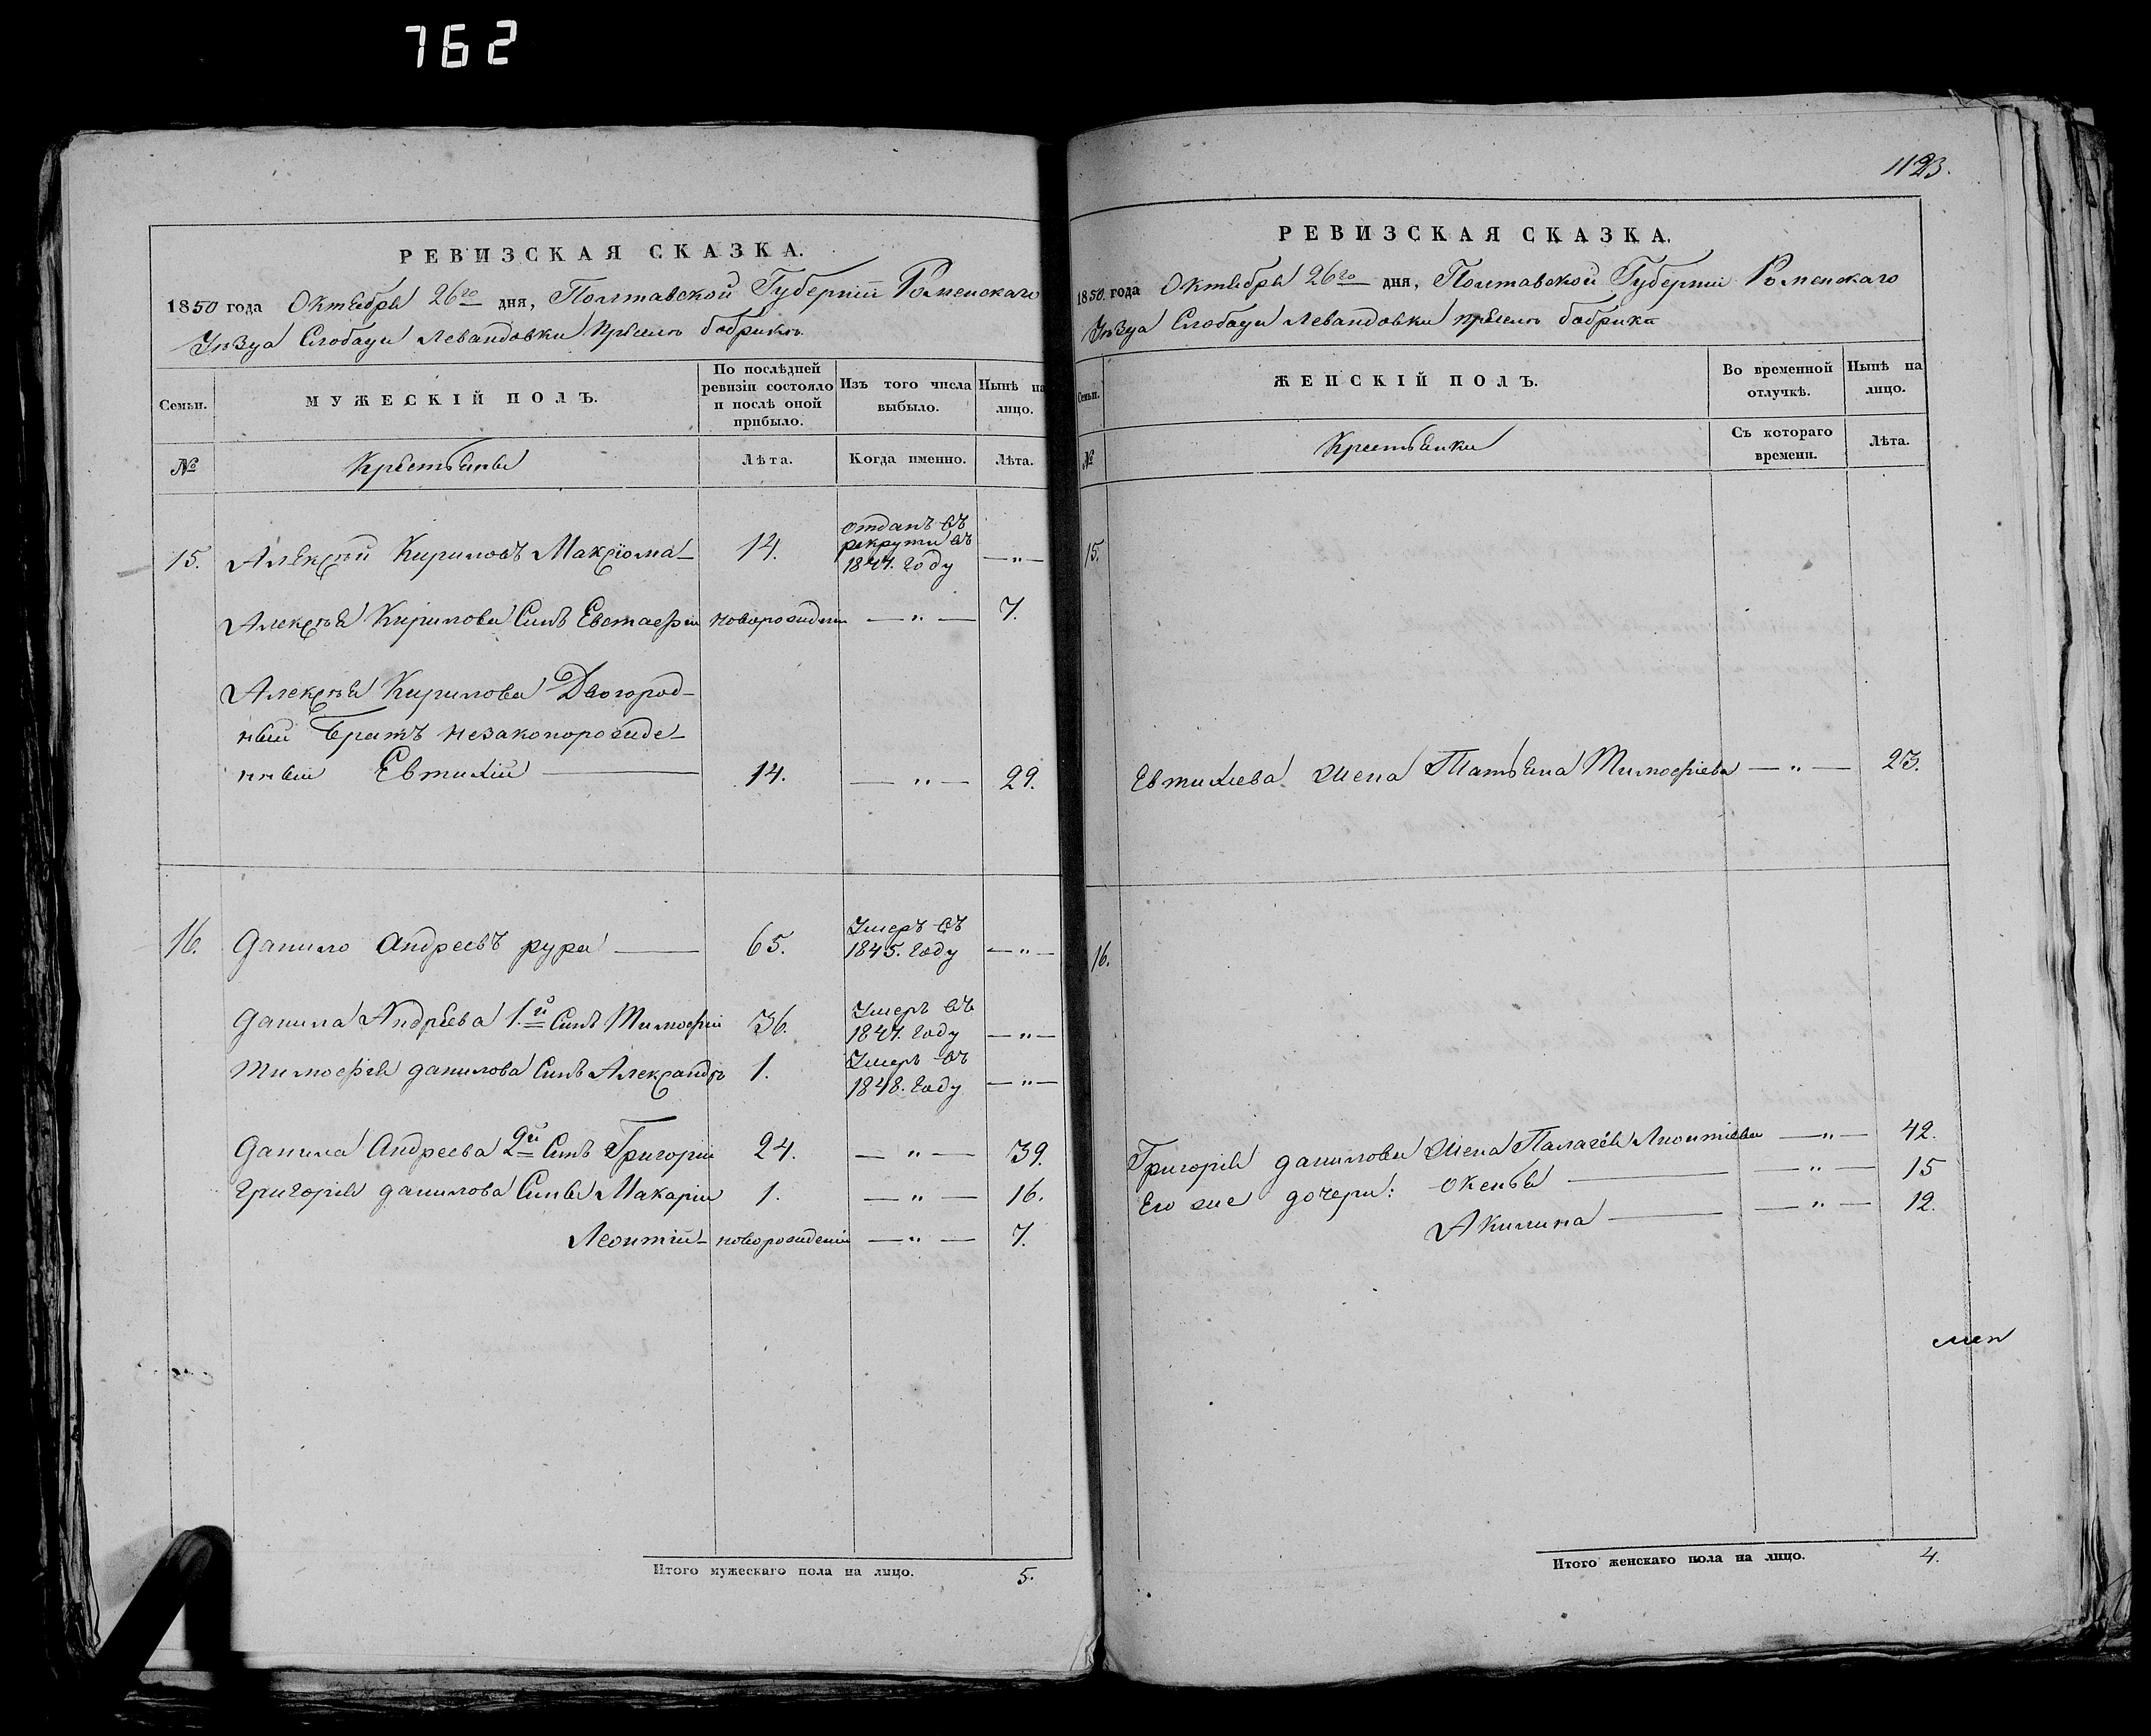 762
РЕВИЗСКАЯ СКАЗКА.
1850 года Октября 26го дня, Полтавской Губернии Роменскаго
Уѣзда Слободи Левандовки
Семьи. МУЖЕСКІЙ ПОЛЪ. По послѣдней ревизіи состояло и послѣ оной прибыло. Изъ того числа выбыло. Нынѣ на лицо.
№ Крестьяне Лѣта. Когда именно. Лѣта.
15. Алексѣй Кириловъ Максіома 14. отданъ въ рекрути въ 1847. году — „ —
Алексѣя Кирилова Синъ Евстафій новорожденій — „ — 7.
Алексѣя Кирилова Двоюрод-
ный Братъ незаконорожде-
нный Евтихій 14. — „ — 29.
16. Данило Андреевъ рура 65. Умеръ въ 1845. году — „ —
Данила Андреева 1.й Синъ Тимофій 36. Умеръ въ 1847. году — „ —
Тимофія данилова Синъ Александръ 1. Умеръ въ 1848. году — „ —
Данила Андреева 2й Синъ Григорій 24. — „ — 39.
Григорія данилова Сины Макарій 1. — „ — 16.
Леонтій новорожденій — „ — 7.
Итого мужескаго пола на лицо. 5.
1123.
РЕВИЗСКАЯ СКАЗКА.
1850. года Октября 26го дня, Полтавской Губерніи Роменскаго
Уѣзда Слободи Левандовки
Семьи. ЖЕНСКІЙ ПОЛЪ. Во временной отлучкѣ. Нынѣ на лицо.
№ Крестьянки Съ котораго времени. Лѣта.
15.
Евтихіева Жена Татьяна Тимофіева — „ — 23.
16.
Григорія данилова Жена Палагея Леонтіева — „ — 42.
Его же дочери: Оксенья — „ — 15
Акилина — „ — 12.
Итого женскаго пола на лицо. 4.